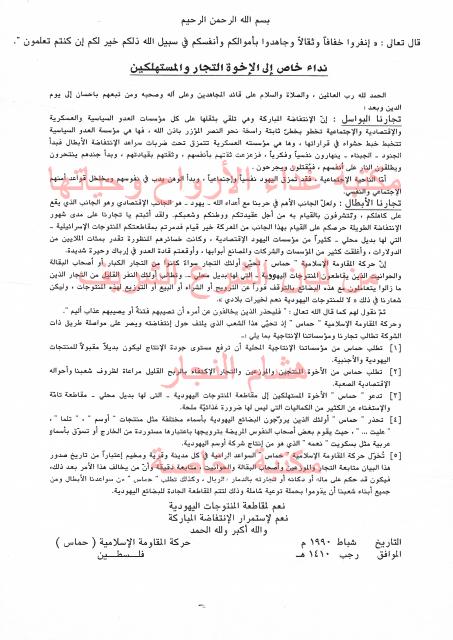 بسم الله الرحمن الرحيم
قال تعالى : « إنفروا خفافاً وثقالاً وجاهدوا بأموالكم وأنفسكم في سبيل الله ذلكم خير لكم إن كنتم تعلمون ".
نداء خاص إلى الإخوة التجار والمستهلكين
الحمد لله رب العالمين ، والصلاة والسلام على قائد المجاهدين وعلى آله وصحبه ومن تبعهم باحسان إلى يوم
الدين وبعد :
تجارنا البواسل : إنّ الإنتفاضة المباركة وهي تلقي بثقلها على كل مؤسسات العدو السياسية والعسكرية
والإقتصادية والإجتماعية تخطو بخطىً ثابتة راسخة نحو النصر المؤزر باذن الله ، فها هي مؤسسة العدو السياسية
تتخبط خبط حشواء في قراراتها ، وها هي مؤسسته العسكرية تتمزق تحت ضربات سواعد الإنتفاضة الأبطال فبدأ
الجنود - الجبناء - ينهارون نفسياً وفكرياً ، فزعزعت ثقتهم بأنفسهم ، وثقتهم بقيادتهم ، وبدأ جندهم ينتحرون
ويطلقون النار على أنفسهم ، فيُقتلون ويجرحون .
أمّا الناحية الإجتماعية ، فقد تمزق اليهود نفسياً وإجتماعياً ، وبدأ الوهن يدب في نفوسهم ويخلخل قواعد أمنهم
الإجتماعي والنفسي.
تجارنا الأبطال : ولعلّ الجانب الأهم في حربنا مع أعداء الله - يهود - هو الجانب الإقتصادي وهو الجانب الذي يقع
على كاهلكم ، وتتشرفون بالقيام به من أجل عقيدتكم ووطنكم وشعبكم. ولقد أثبتم يا تجارنا على مدى شهور
الإنتفاضة الطويلة حرصكم على القيام بهذا الجانب من المعركة خير قيام فدمرتم بمقاطعتكم المنتوجات الإسرائيلية -
التي لها بديل محلي - كثيراً من مؤسسات اليهود الإقتصادية ، وكانت خسائرهم المنظورة تقدر بمئات الملايين من
الدولارات ، وأغلقت كثير من المؤسسات والشركات والمصانع أبوابها ، وأوقعتم قادة العدو في إرباك وحيرة شديدة.
إنّ حركة المقاومة الإسلامية " حماس " تحيّي أولئك التجار سواءً كانوا من التجار الكبار أو أصحاب البقالة
والحوانيت الذين يقاطعون المنتوجات اليهودية - التي لها بديل محلي - وتطالب أولئك النفر القليل من التجار الذين
ما زالوا يتعاملون مع هذه البضائع بالتوقف فوراً عن الترويج أو الشراء أو البيع أو التوزيع لهذه المنتوجات ، وليكن
شعارنا في ذلك « لا للمنتوجات اليهودية نعم لخيرات بلادي ».
ثمّ نقول لهم كما قال الله تعالى : " فليحذر الذين يخالفون عن أمره أن تصيبهم فتنةٌ أو يصيبهم عذاب أليم ".
وحركة المقاومة الإسلامية " حماس " إذ تحيّي هذا الشعب الذي يلتف حول إنتفاضته ويصر على مواصلة طريق ذات
الشوكة تطالب تجارنا ومؤسساتنا الإنتاجية بما يلي :-
[١] تطلب حماس من مؤسساتنا الإنتاجية المحلية أن ترفع مستوى جودة الإنتاج ليكون بديلاً مقبولاً للمنتجات
اليهودية والأجنبية.
[٢] تطلب حماس من الأخوة المنتجين والموزعين والتجار الإكتفاء بالربح القليل مراعاة لظروف شعبنا وأحواله
الإقتصادية الصعبة.
[٣] تدعو " حماس " الأخوة المستهلكين إلى مقاطعة المنتوجات اليهودية - التي لها بديل محلي - مقاطعة تامّة
والإستغناء عن الكثير من الكماليات التي ليس لها ضرورة غذائية ملحة.
[٤] تحذر " حماس " أولئك الذين يروّجون البضائع اليهودية بأسماء مختلفة مثل منتجات " أوسم " ، " تلما " ،
" عليت ... " ، حيث يقوم بعض أصحاب النفوس المريضة بترويجها باعتبارها مستوردة من الخارج أو تسوّق بأسماءٍ
عربية مثل بسكويت " نعمه " الذي هو من إنتاج شركة أوسم اليهودية.
[٥] تُخوّل حركة المقاومة الإسلامية " حماس " السواعد الرامية في كل مدينة وقرية ومخيم إعتباراً من تاريخ صدور
هذا البيان متابعة التجار والموزعين وأصحاب البقالة والحوانيت ، متابعة دقيقة وأنّ من يخالف هذا الأمر بعد ذلك،
فيكون قد حكم على ماله أو دكانه أو تجارته بالدمار والزوال ، وكذلك تطلب " حماس " من سواعدنا الأبطال ومن
جميع أبناء شعبنا أن يقوموا بحملة توعية شاملة وذلك لتتم المقاطعة الجادة للبضائع اليهودية.
نعم لمقاطعة المنتوجات اليهودية
نعم لإستمرار الإنتفاضة المباركة
والله أكبر ولله الحمد
التاريخ شباط ١٩٩٠ م حركة المقاومة الإسلامية ( حماس )
الموافق رجب ١٤١٠ هـ فلسطين
هشام النبار